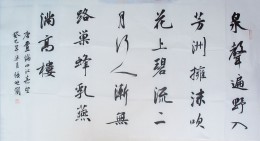 泉聲遍野入
芳洲擁沫吹
花上碧流二
月行人漸無
路巢蜂乳燕
滿高樓